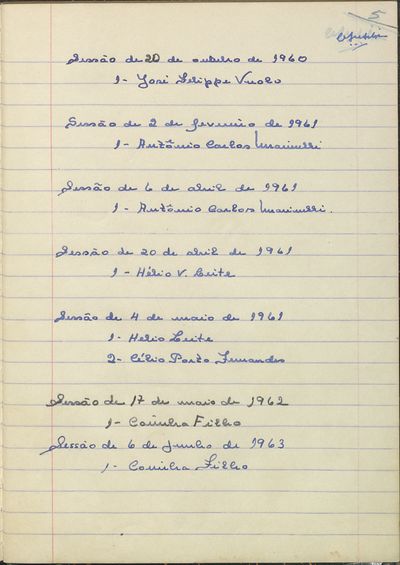 5
Sessão de 20 de outubro de 1960
1- José Felippe Vuolo
Sessão de 2 de fevereiro de 1961
1- Antônio Carlos
Sessão de 6 de abril de 1961
1- Antônio Carlos
Sessão de 20 de abril de 1961
1- Hélio V. Leite
Sessão de 4 de maio de 1961
1- Helio Leite
2- Célio Porto Fernandes
Sessão de 17 de maio de 1962
1- Coimbra Filho
Sessão de 6 de junho de 1963
1- Coimbra Filho